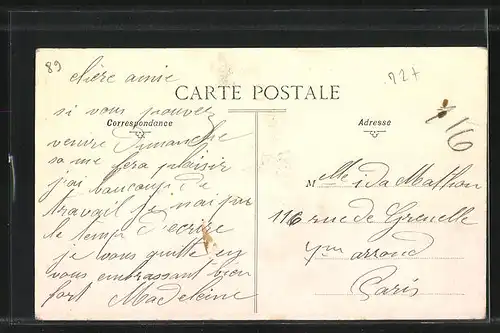 89
chère amie
CARTE POSTALE
si vous pouvez
Correspondance
venire Dimanche
sa me fera plaisir
j'ai baucoup de
travail je n'ai pas
le temp d'ecrire
je vous quitte en
vous embrassant bien
fort Madeleine
Adresse
Melle ida Mathon
116 rue de Grenelle
arrond
Paris